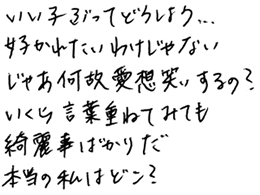 いい子ぶってどうしよう...
好かれたいわけじゃない
じゃあ何故愛想笑いするの?
いくら言葉重ねてみても
綺麗事ばかりだ
本当の私はどこ?